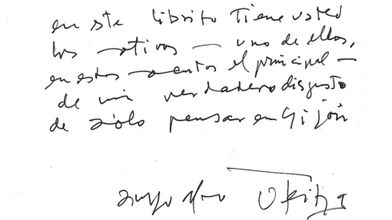 en este librito tiene usted
los motivos — uno de ellos,
en estos momentos el principal —
de mi verdadero disgusto
de sólo pensar en Gijón